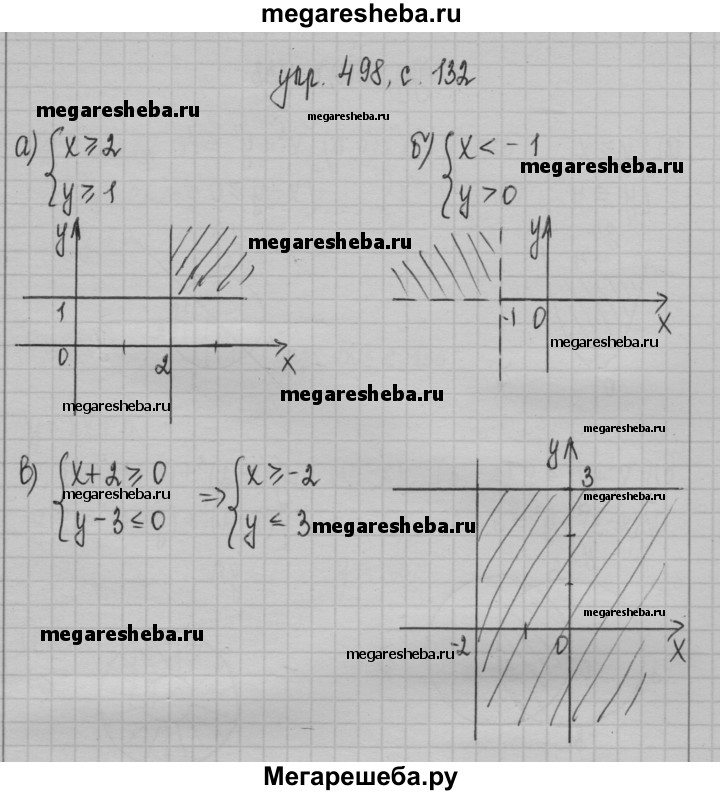 megaresheba.ru
упр. 498, с. 132
megaresheba.ru
megaresheba.ru
а) { x ≥ 2
y ≥ 1
б) { x < -1
y > 0
megaresheba.ru
y
megaresheba.ru
1
0 2 x
megaresheba.ru
y
-1 0 x
megaresheba.ru
megaresheba.ru
в) { x + 2 ≥ 0
y - 3 ≤ 0
megaresheba.ru
=> { x ≥ -2
y ≤ 3
megaresheba.ru
megaresheba.ru
y
3
megaresheba.ru
megaresheba.ru
-2 0 x
megaresheba.ru
megaresheba.ru
Мегарешеба.ру